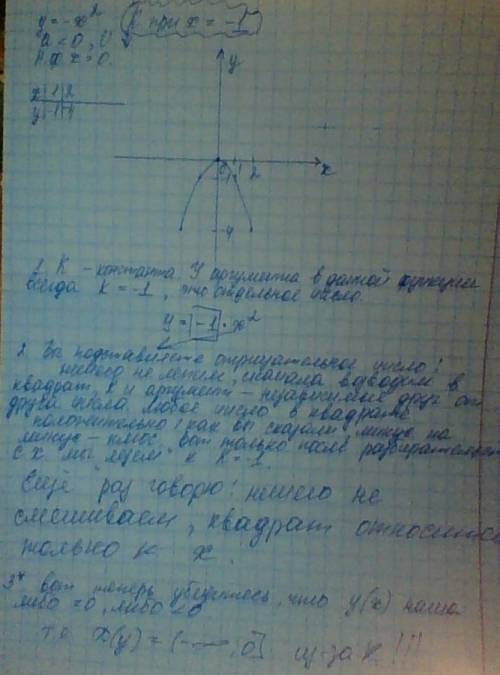 y = -x²  K при x = -1
a < 0, U
x = 0.
x | 1 | 2
y | -1 | -4
y
0 1 2 x
-4
1. К - константа. У аргумента в данной функции
всегда К = -1, это отдельное число.
У = -1 · x²
2. Вы подставляете отрицательное число!
ничего не метем, сначала возводим в
квадрат, К и аргумент - независимые друг от
друга числа, любое число в квадрате
положительно! как вы сказали, минус на
минус - плюс, вот только после разбирательств
с х мы лезем к К = -1.
Ещё раз говорю! ничего не
смешиваем, квадрат относится
только к х.
3* вот теперь убедитесь, что y(x) наша
либо =0, либо <0
т.е x(y) = (-∞, 0] из-за К!!!